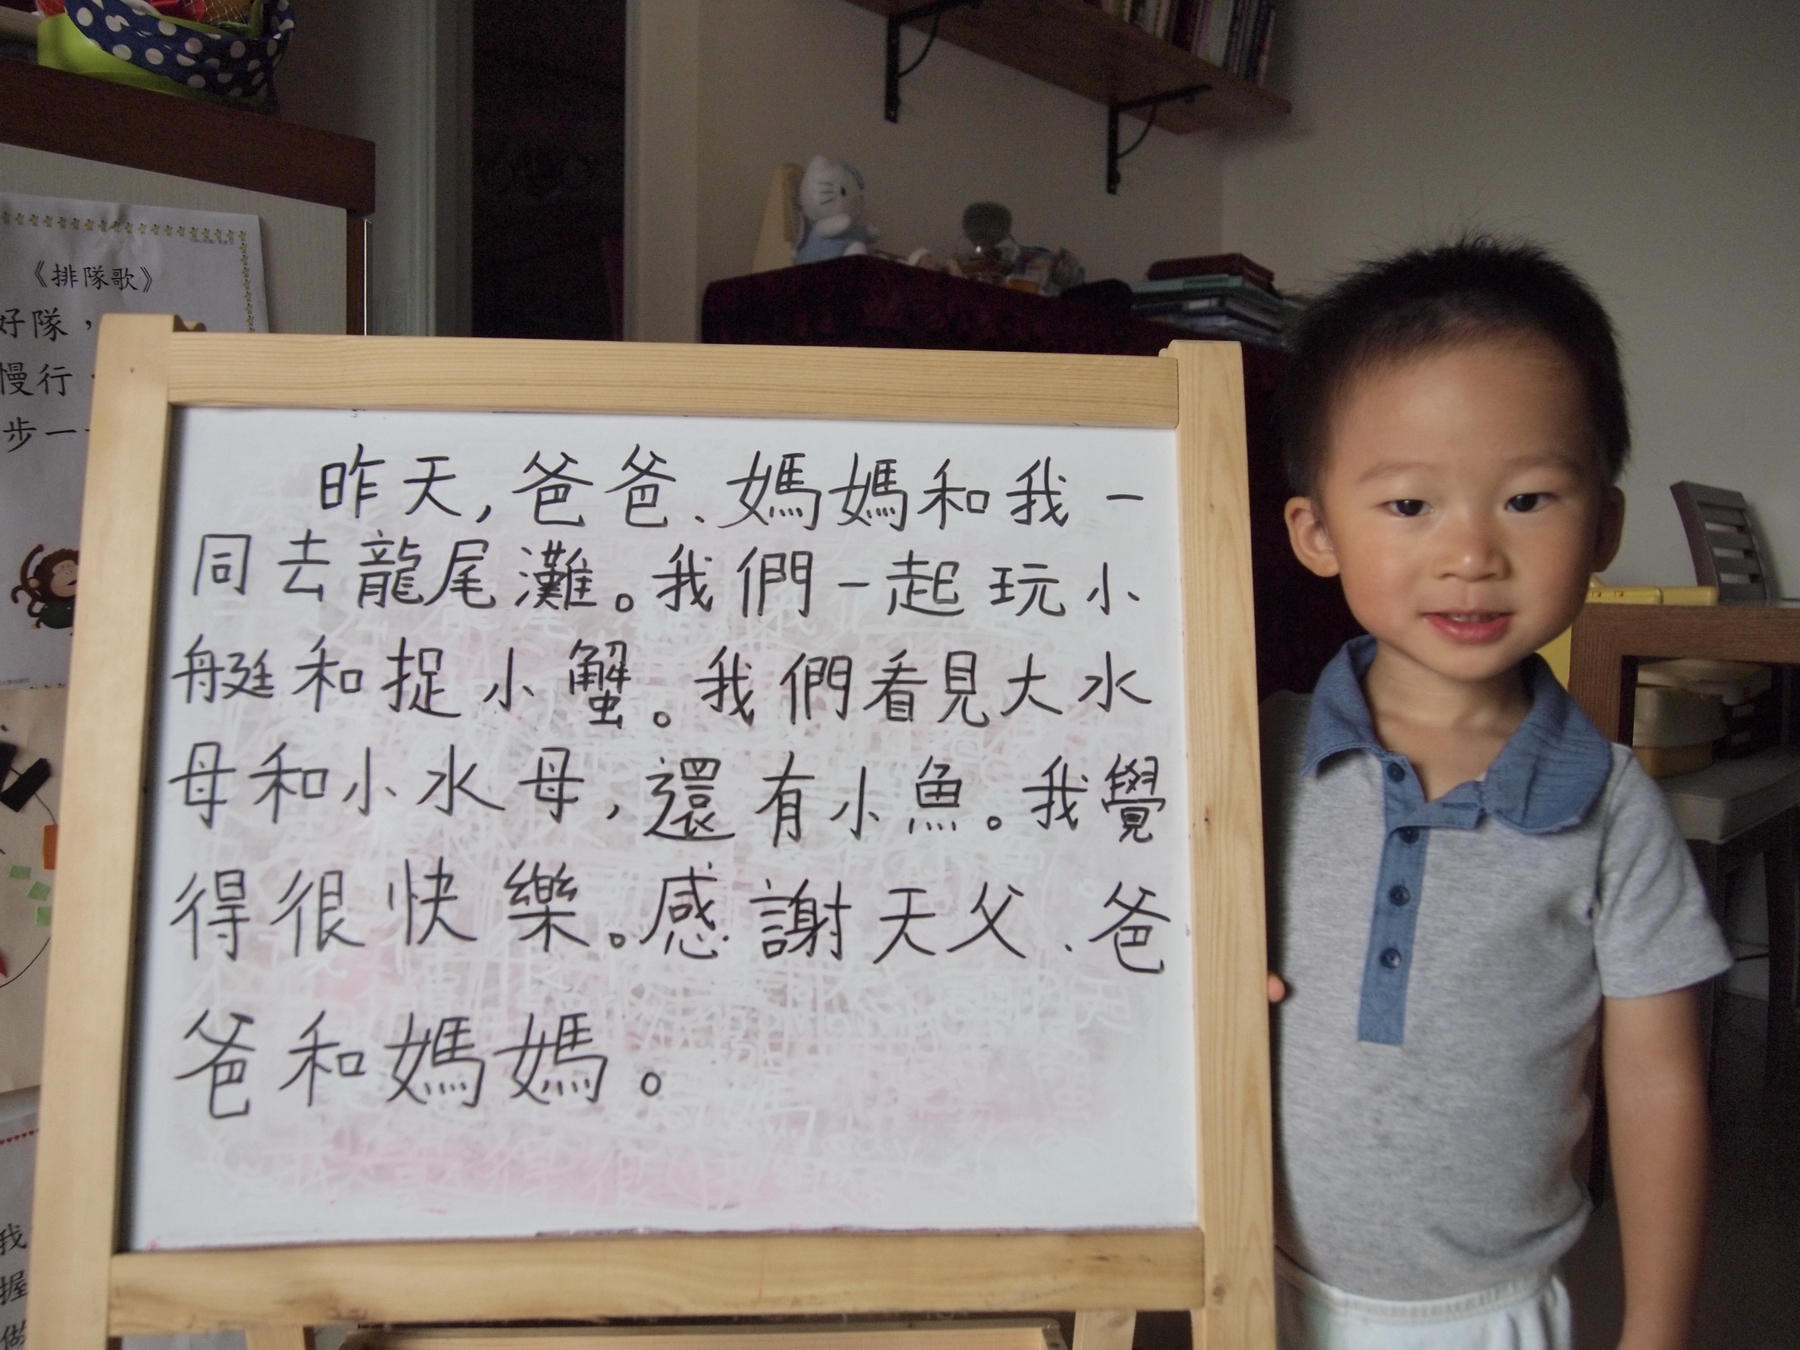 《排隊歌》
好隊，
慢行
步一
昨天,爸爸、媽媽和我一
同去龍尾灘。我們一起玩小
艇和捉小蟹。我們看見大水
母和小水母,還有小魚。我覺
得很快樂。感謝天父、爸
爸和媽媽。
我
握
做